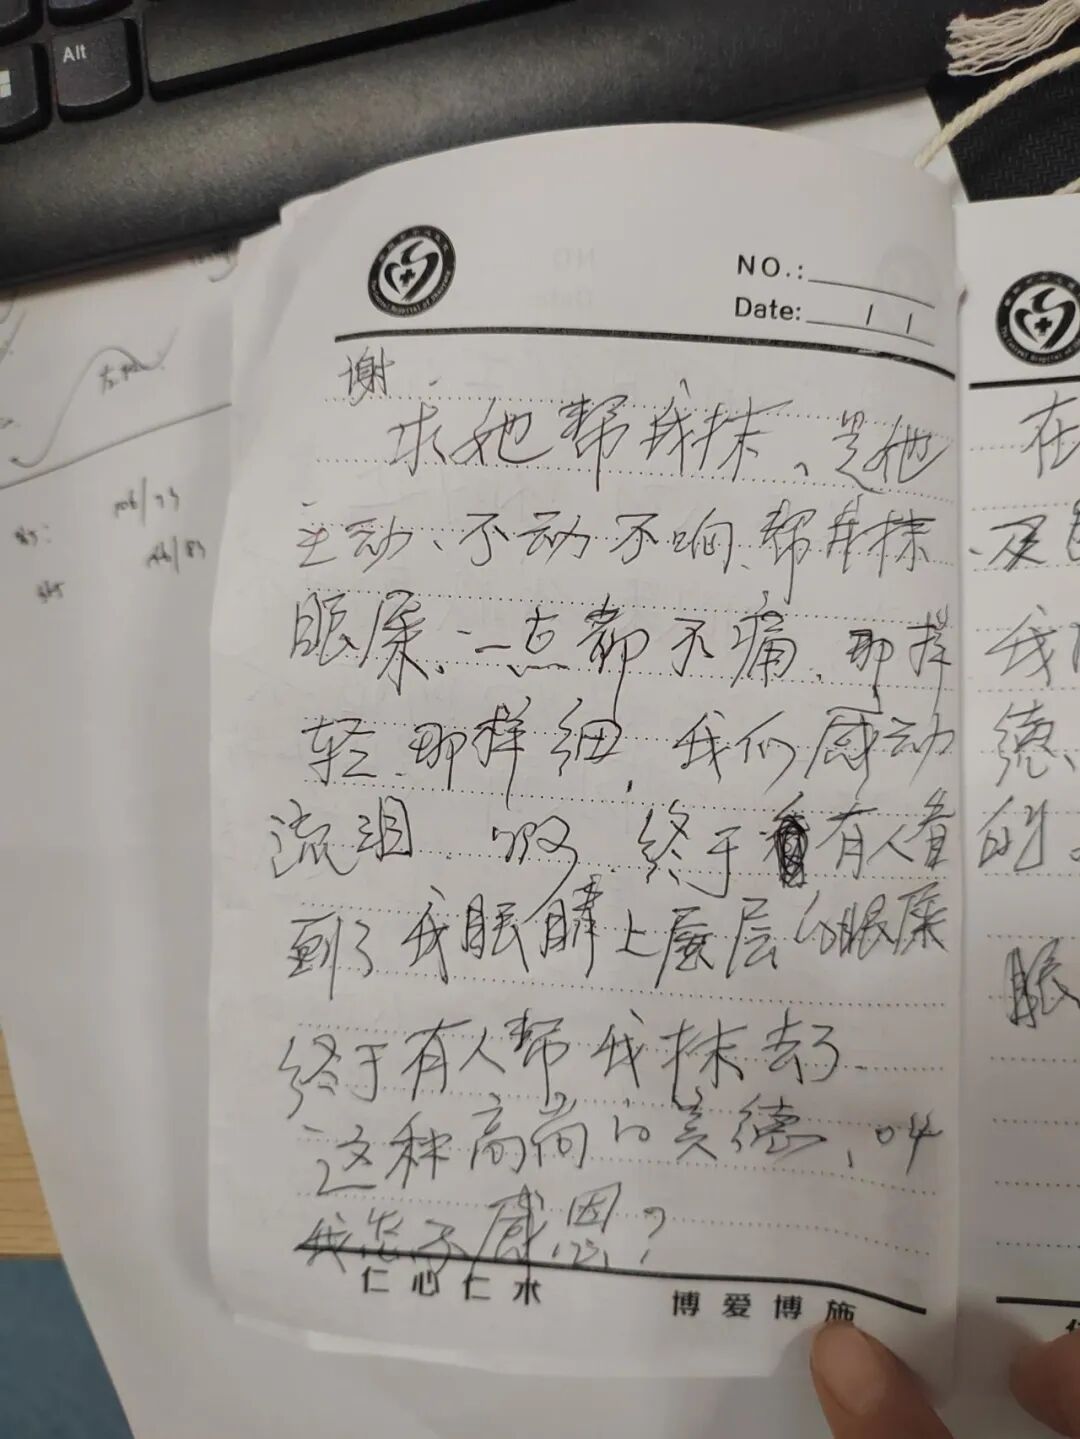 Alt
NO.:
Date:
谢
求她帮我抹、是她
主动、不动不响、帮我抹
眼屎、一点都不痛、那样
轻、那样细,我们感动
流泪、啊、终于有人看
到了我眼睛上层层的眼屎
终于有人帮我抹去了
这种高尚的美德、叫
我怎不感恩?
仁心仁术
博爱博施
在
我
德、
的。
眼
106/73